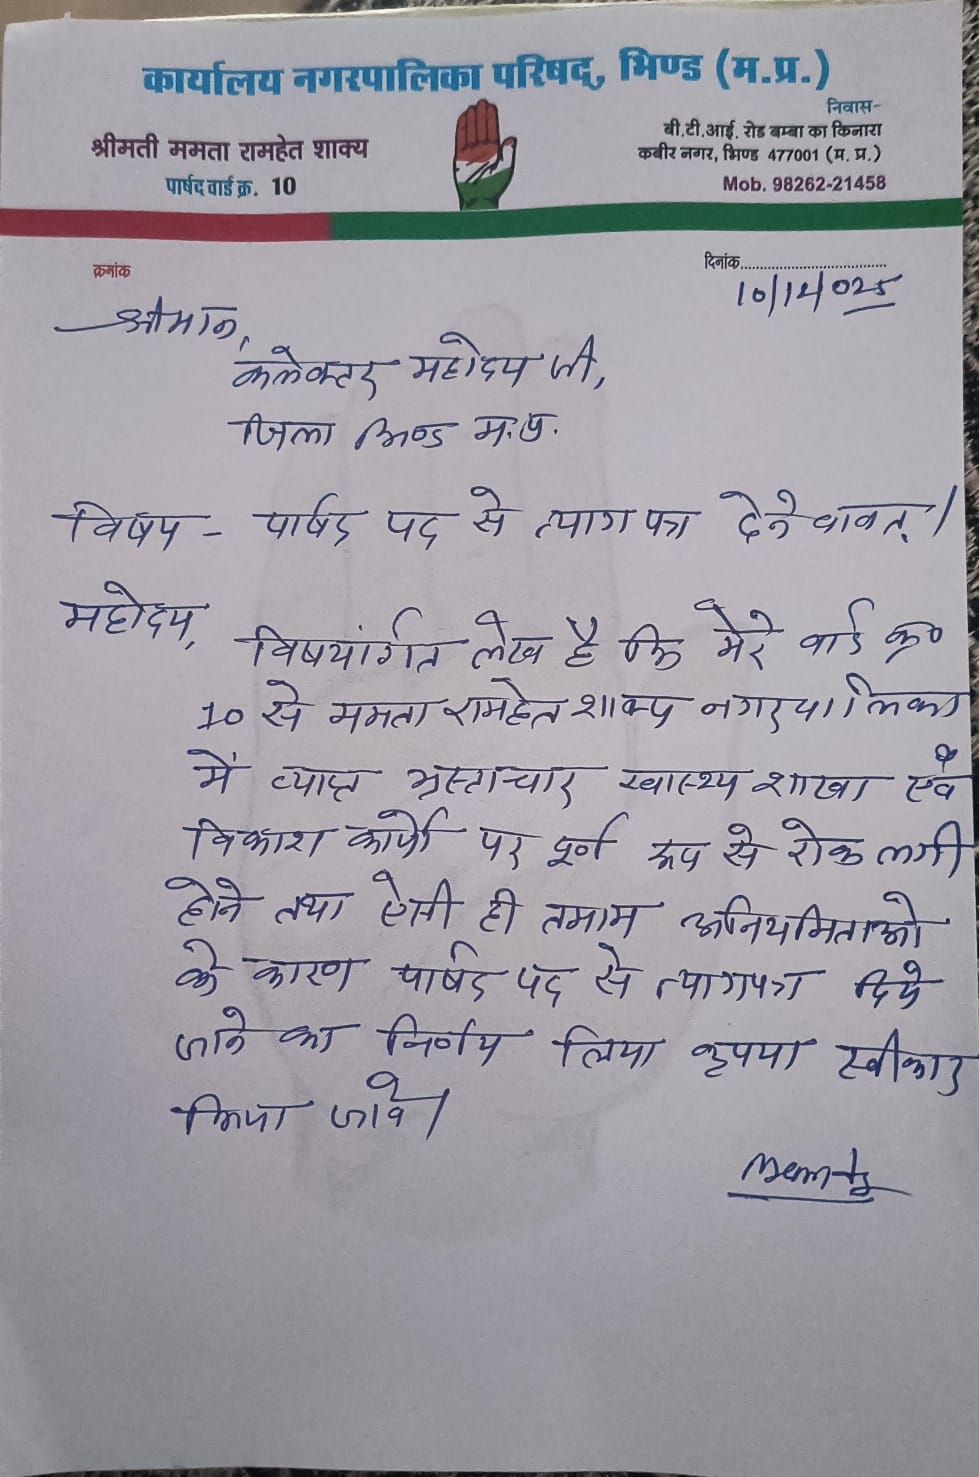 कार्यालय नगरपालिका परिषद्, भिण्ड (म.प्र.)
निवास-
श्रीमती ममता रामहेत शाक्य
बी.टी.आई. रोड बम्बा का किनारा
पार्षद वार्ड क्र. 10
कबीर नगर, भिण्ड 477001 (म. प्र.)
Mob. 98262-21458
क्रमांक
दिनांक...................................
10/12/025
श्रीमान,
कलेक्टर महोदय जी,
जिला भिण्ड म.प्र.
विषय - पार्षद पद से त्याग पत्र देने वावत्।
महोदय,
विषयांर्गत लेख है कि मेरे वार्ड क्र०
10 से ममता रामहेत शाक्य नगरपालिका
में व्याप्त भ्रस्टाचार स्वास्थ्य शाखा एवं
विकाश कार्यो पर पूर्ण रूप से रोक लगी
होने तथा ऐसी ही तमाम अनियमिताओ
के कारण पार्षद पद से त्यागपत्र दिये
जाने का निर्णय लिया कृपया स्वीकार
किया जावे।